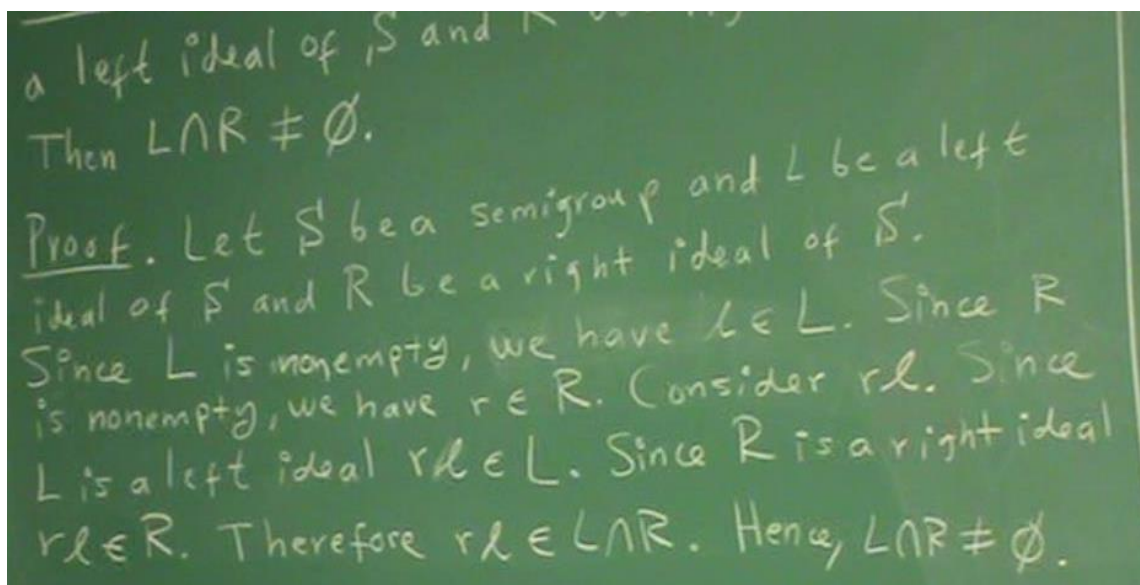 a left ideal of S and R
Then L∩R ≠ Ø.
Proof. Let S be a semigroup and L be a left
ideal of S and R be a right ideal of S.
Since L is nonempty, we have l ∈ L. Since R
is nonempty, we have r ∈ R. Consider rl. Since
L is a left ideal rl ∈ L. Since R is a right ideal
rl ∈ R. Therefore rl ∈ L∩R. Hence, L∩R ≠ Ø.